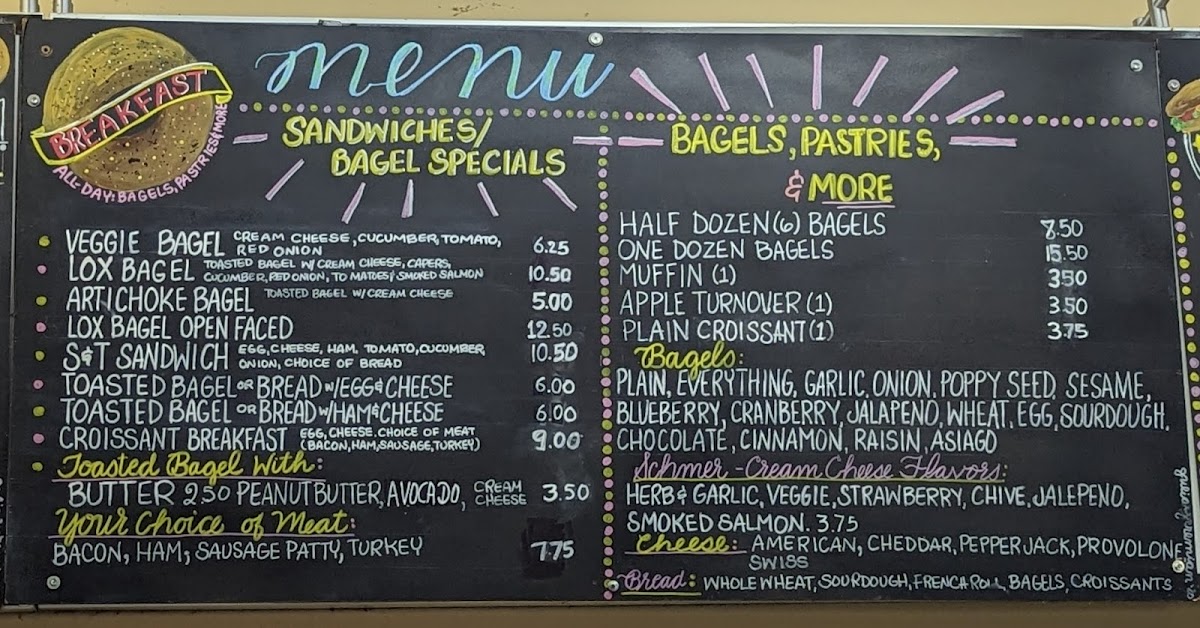 BREAKFAST
ALL-DAY: BAGELS, PASTRIES & MORE
menu
SANDWICHES/
BAGEL SPECIALS
VEGGIE BAGEL CREAM CHEESE, CUCUMBER, TOMATO, RED ONION 6.25
LOX BAGEL TOASTED BAGEL W/ CREAM CHEESE, CAPERS, CUCUMBER, RED ONION, TOMATOES & SMOKED SALMON 10.50
ARTICHOKE BAGEL TOASTED BAGEL W/ CREAM CHEESE 5.00
LOX BAGEL OPEN FACED 12.50
S&T SANDWICH EGG, CHEESE, HAM, TOMATO, CUCUMBER, ONION, CHOICE OF BREAD 10.50
TOASTED BAGEL OR BREAD W/ EGG & CHEESE 6.00
TOASTED BAGEL OR BREAD W/ HAM & CHEESE 6.00
CROISSANT BREAKFAST EGG, CHEESE, CHOICE OF MEAT (BACON, HAM, SAUSAGE, TURKEY) 9.00
Toasted Bagel With:
BUTTER 2.50 PEANUT BUTTER, AVOCADO, CREAM CHEESE 3.50
Your Choice of Meat:
BACON, HAM, SAUSAGE PATTY, TURKEY 7.75
BAGELS, PASTRIES,
& MORE
HALF DOZEN (6) BAGELS 8.50
ONE DOZEN BAGELS 15.50
MUFFIN (1) 3.50
APPLE TURNOVER (1) 3.50
PLAIN CROISSANT (1) 3.75
Bagels:
PLAIN, EVERYTHING, GARLIC, ONION, POPPY SEED, SESAME,
BLUEBERRY, CRANBERRY, JALAPENO, WHEAT, EGG, SOURDOUGH,
CHOCOLATE, CINNAMON, RAISIN, ASIAGO
Schmer - Cream Cheese Flavors:
HERB & GARLIC, VEGGIE, STRAWBERRY, CHIVE, JALEPENO,
SMOKED SALMON. 3.75
Cheese: AMERICAN, CHEDDAR, PEPPER JACK, PROVOLONE
SWISS
Bread: WHOLE WHEAT, SOURDOUGH, FRENCH ROLL, BAGELS, CROISSANTS